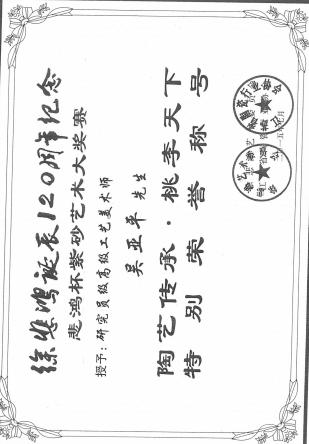 徐悲鸿诞辰120周年纪念
悲鸿杯紫砂艺术大奖赛
授予：研究员级高级工艺美术师
吴亚平 先生
陶艺传承·桃李天下
特别荣誉称号